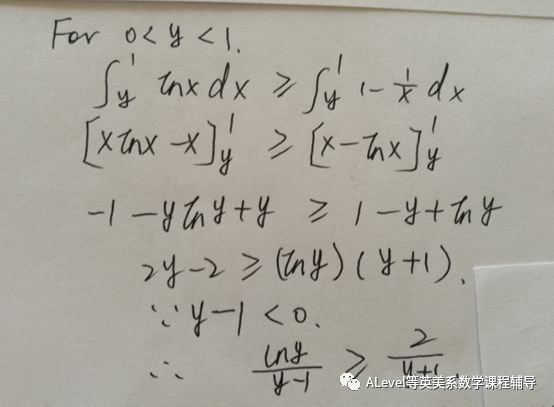 For 0<y<1.
∫_y^1 lnx dx ≥ ∫_y^1 1-1/x dx
[xlnx-x]_y^1 ≥ [x-lnx]_y^1
-1-ylny+y ≥ 1-y+lny
2y-2 ≥ (lny)(y+1).
∵ y-1<0.
∴ lny/y-1 ≥ 2/y+1
ALevel等英美系数学课程辅导